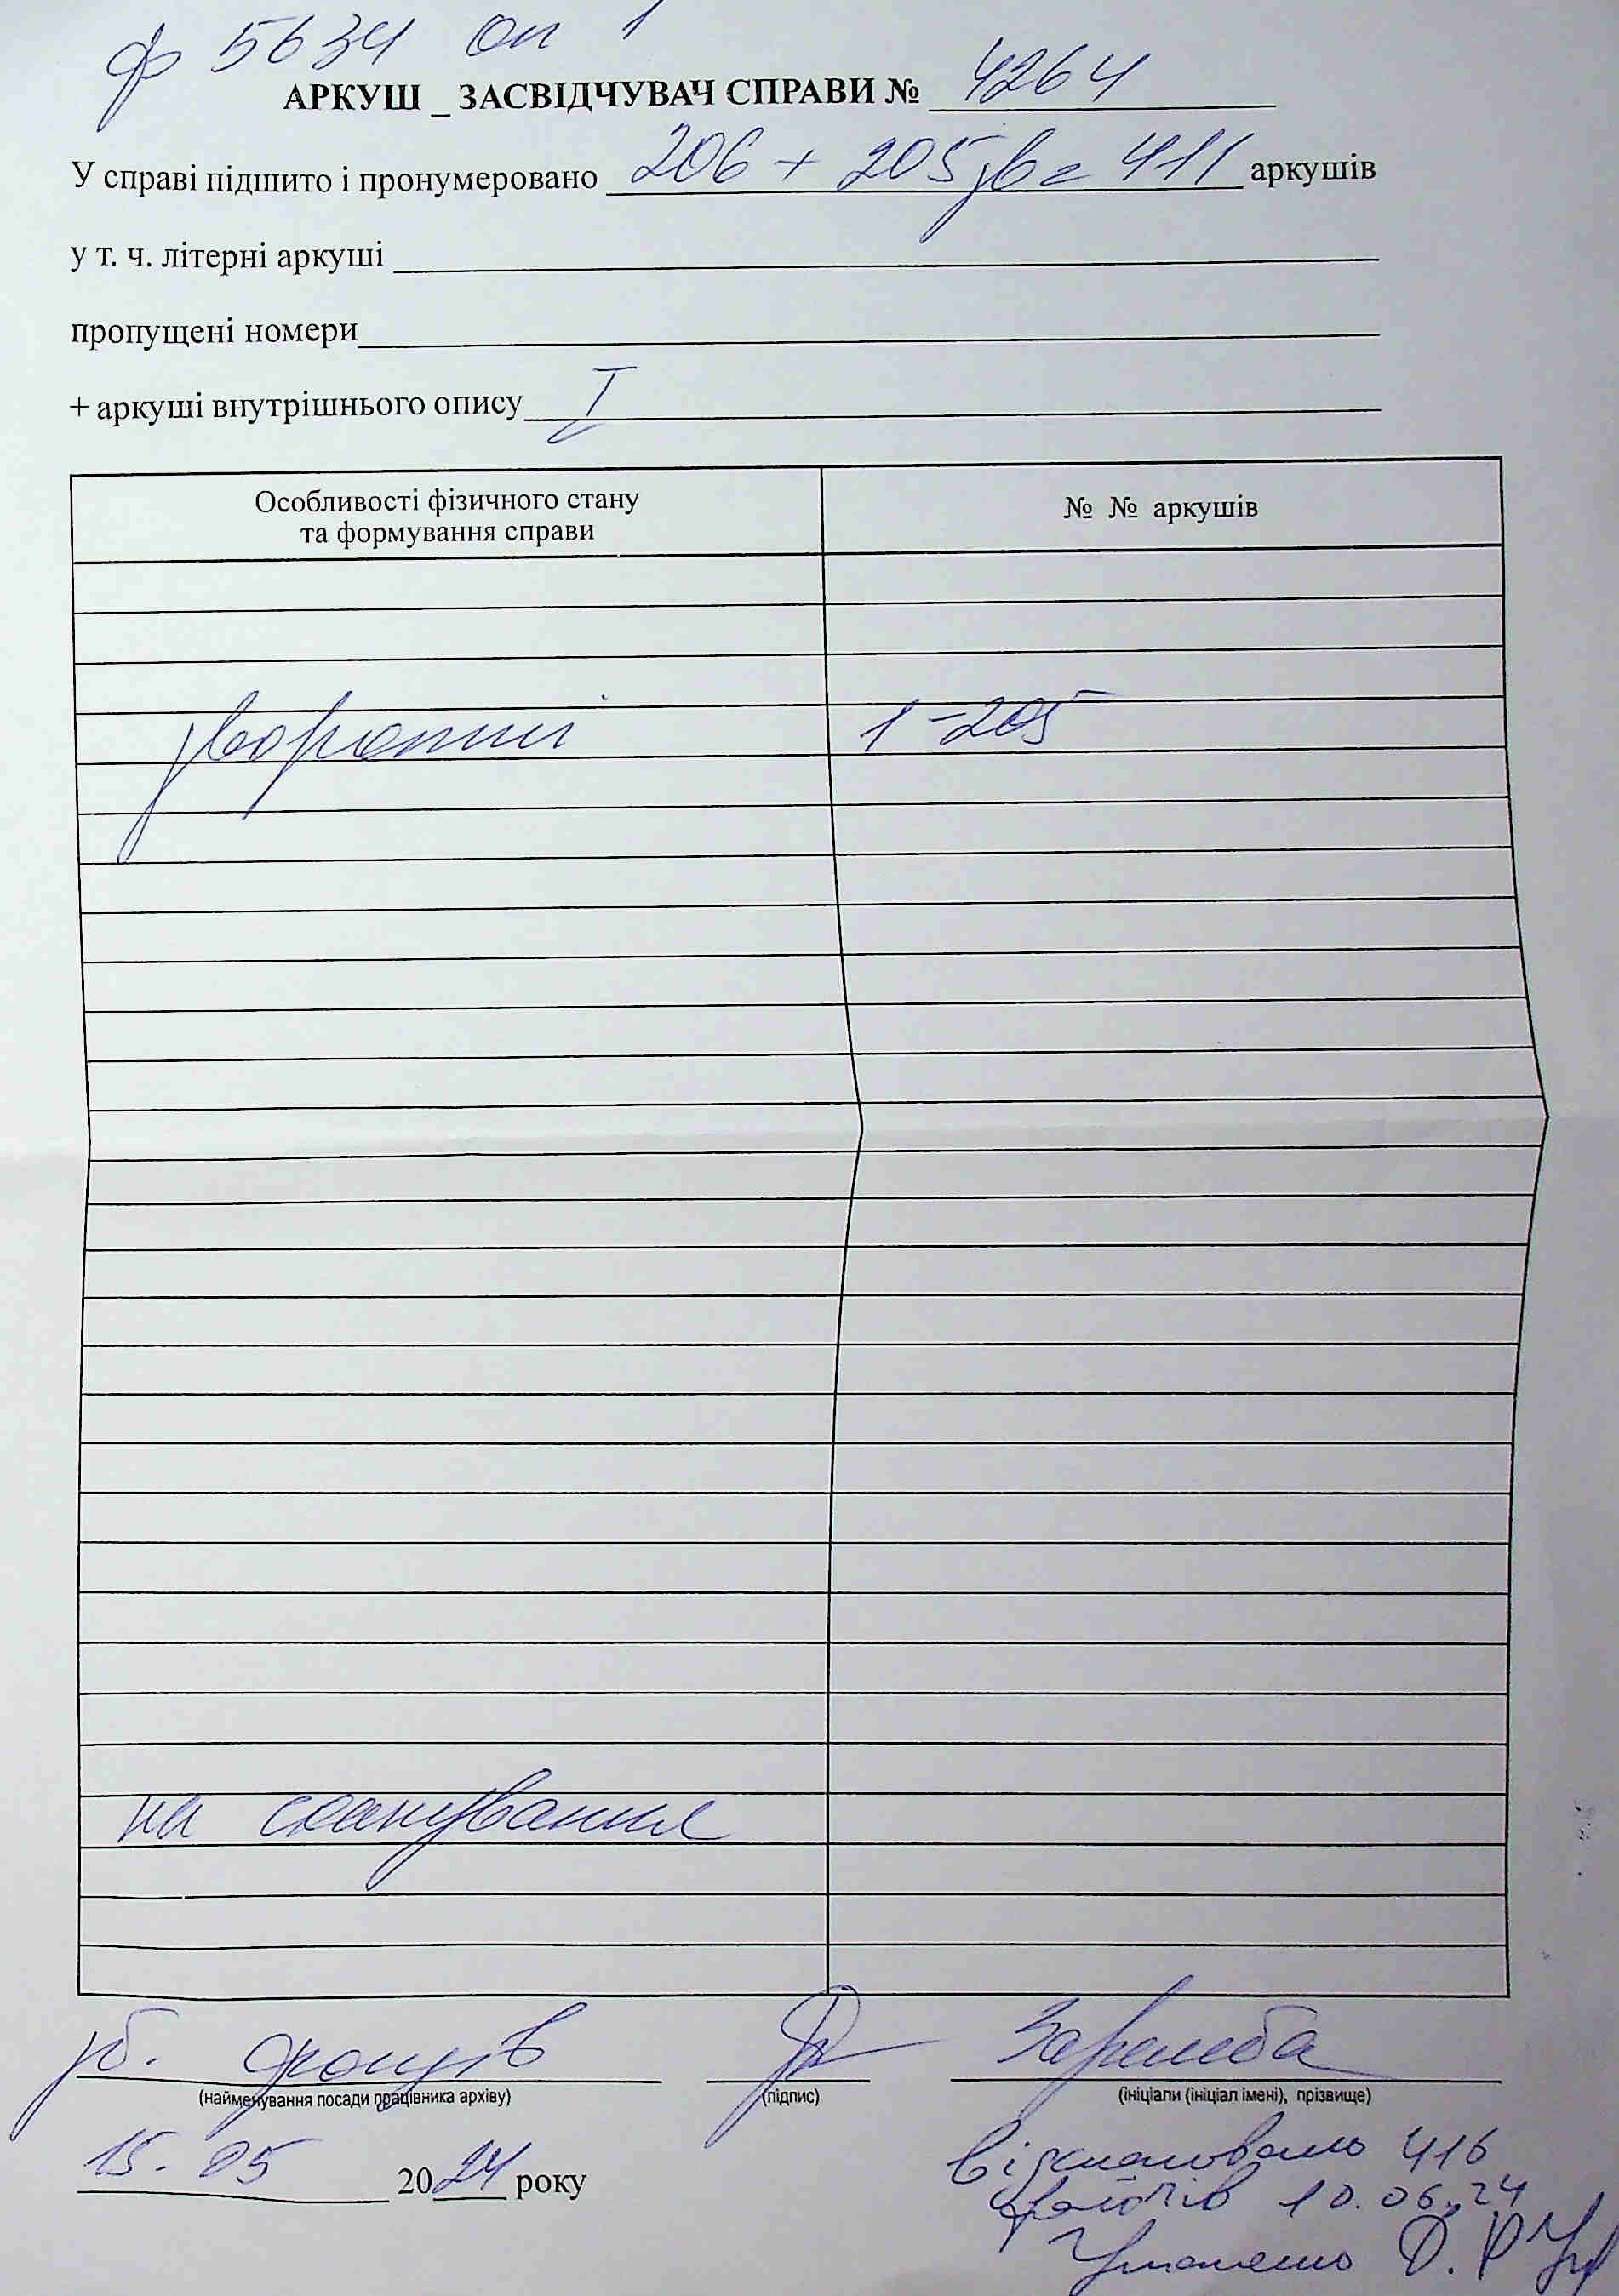 ф 5634 оп 1
АРКУШ _ ЗАСВІДЧУВАЧ СПРАВИ № 4264
У справі підшито і пронумеровано 206 + 205зв = 411 аркушів
у т. ч. літерні аркуші
пропущені номери
+ аркуші внутрішнього опису I
Особливості фізичного стану та формування справи
№ № аркушів
зворотні 1-205
на сканування
зб. фондів Заремба
(найменування посади працівника архіву) (підпис) (ініціали (ініціал імені), прізвище)
15.05 2024 року
Відскановано 416
файлів 10.06.24
О.Р.